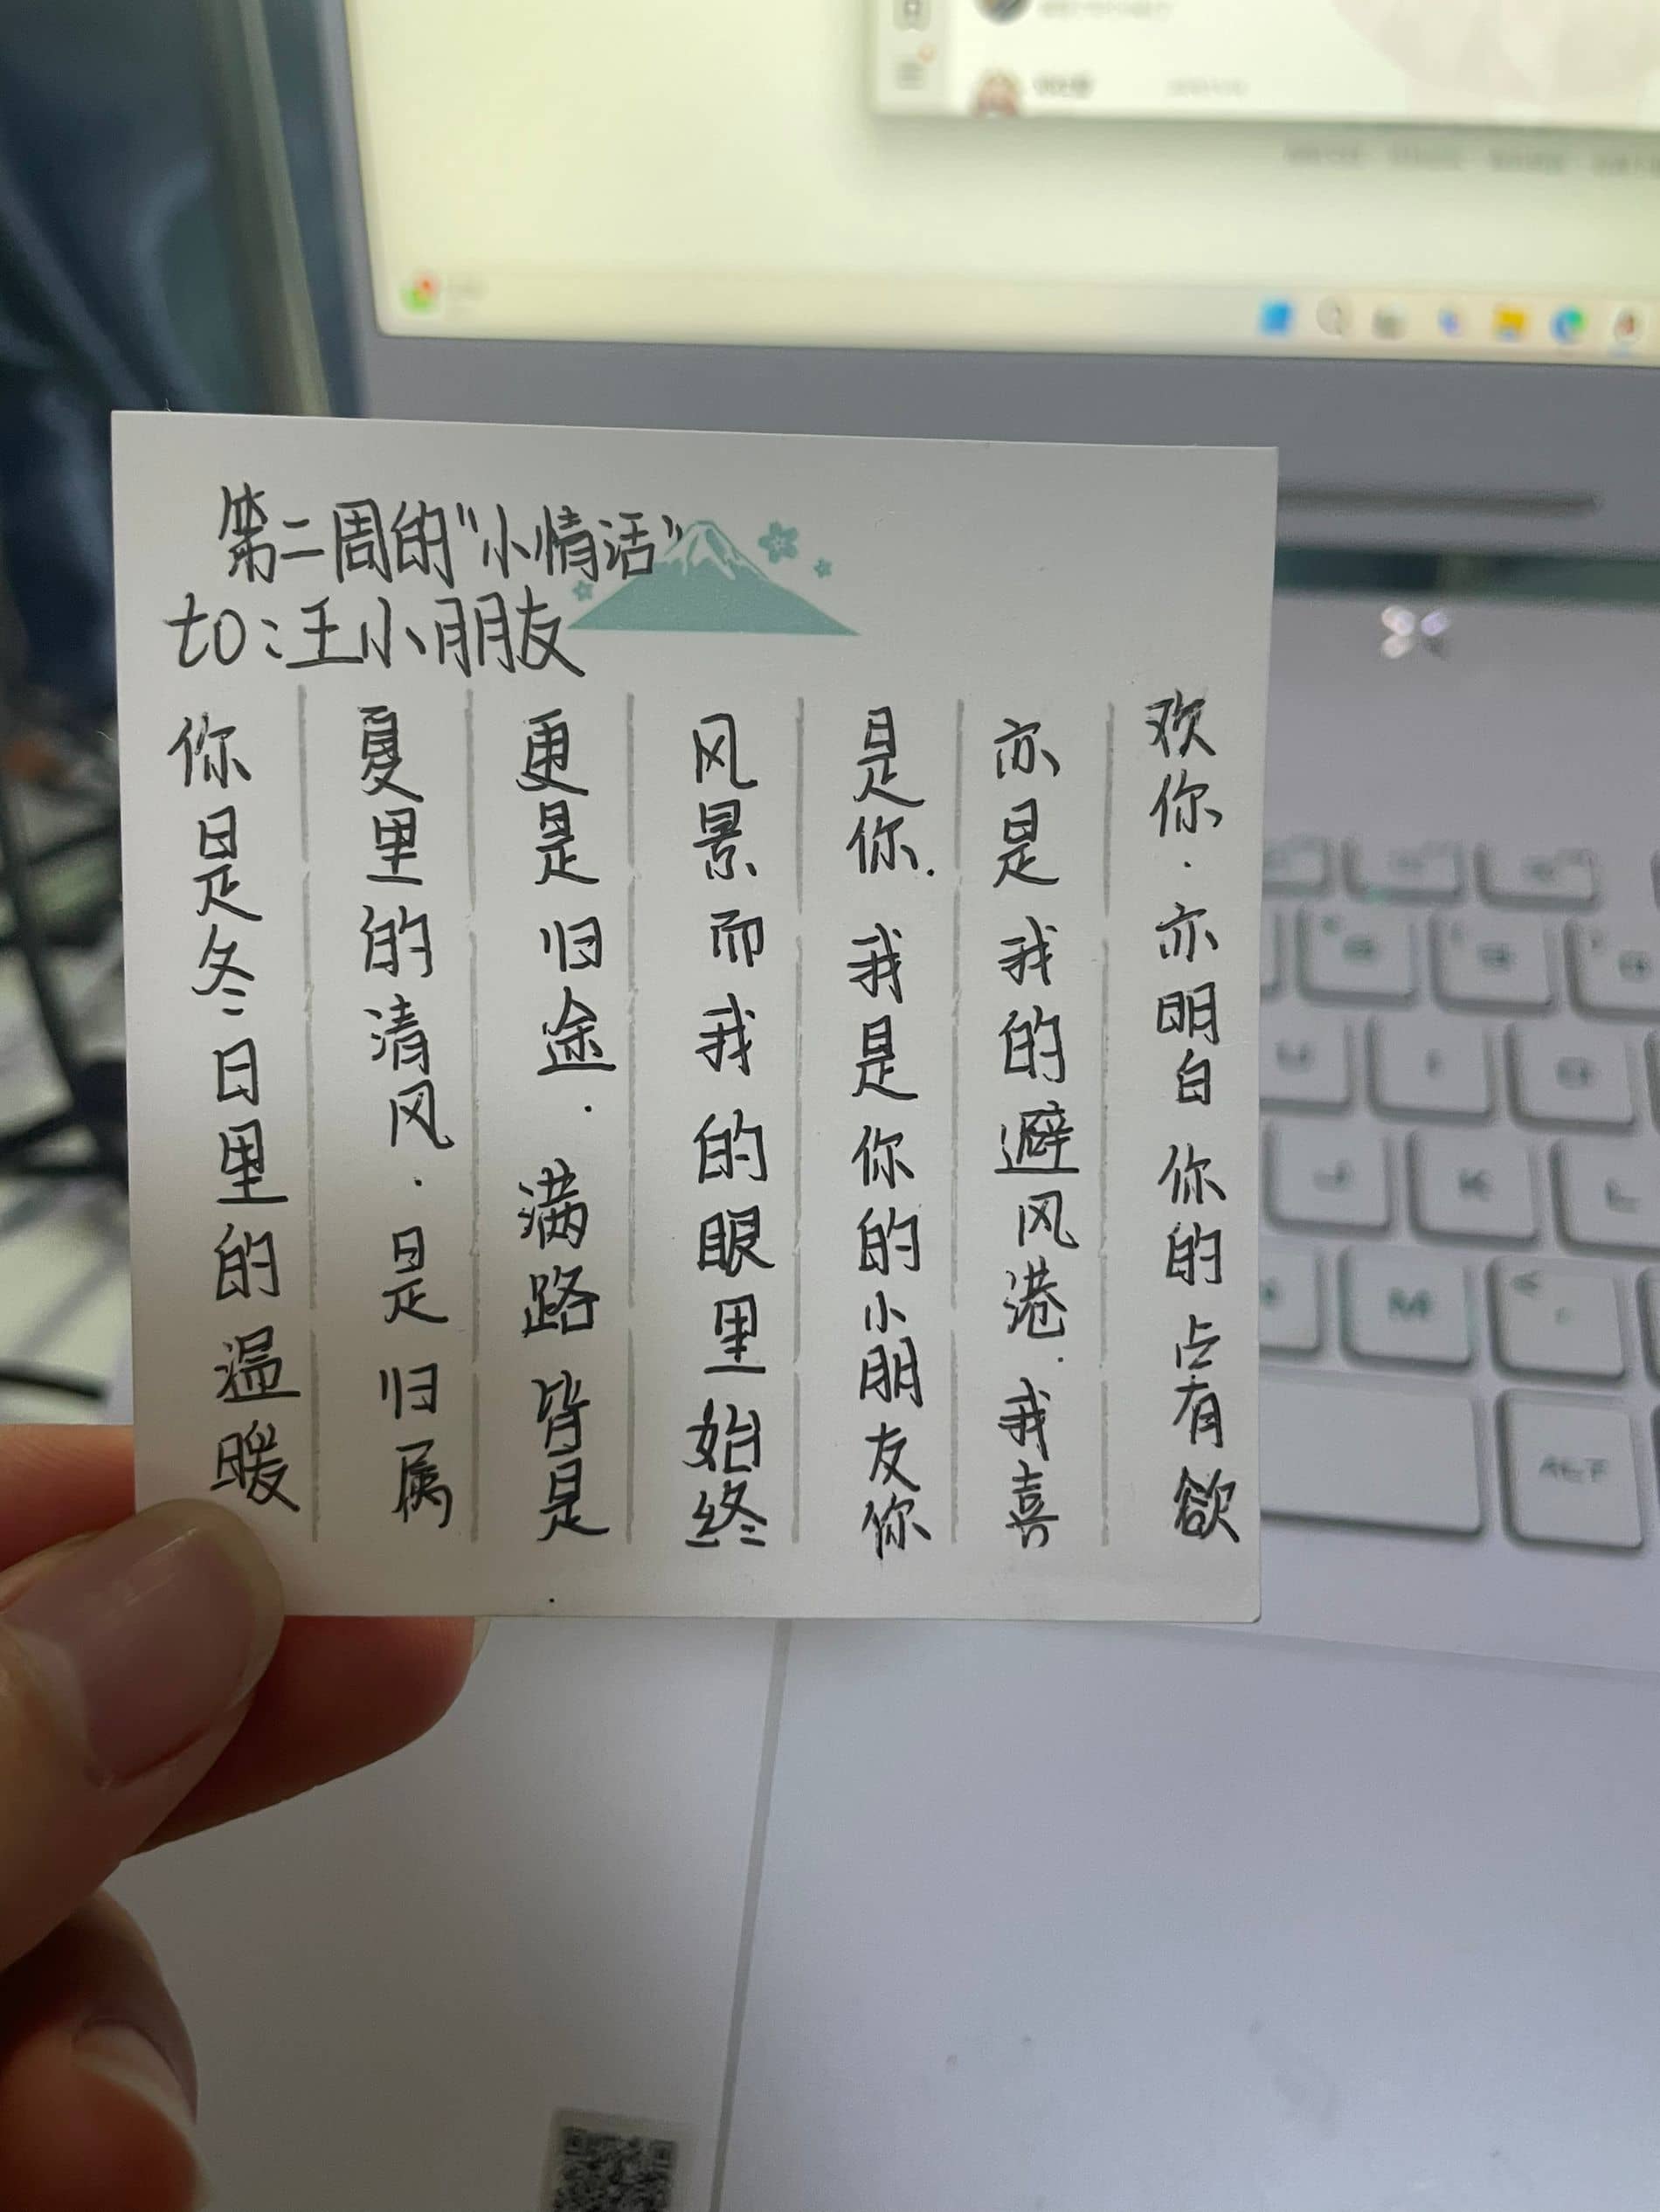 第二周的“小情话”
to:王小朋友
你是冬日里的温暖
夏里的清风.是归属
更是归途.满路皆是
风景而我的眼里始终
是你.我是你的小朋友你
亦是我的避风港.我喜
欢你.亦明白你的占有欲
M
K
ALT